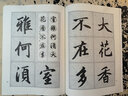 室雅何須大
花香不在多
室
雅何須
大花香
不在多